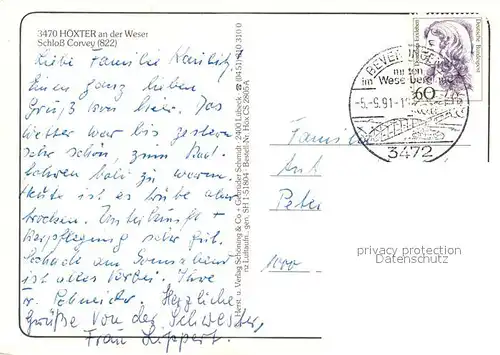 3470 HÖXTER an der Weser
Schloß Corvey (822)
Liebe Familie
Einen ganz lieben
Gruß von hier. Das
Wetter war bis gestern
sehr schön, zum Rad-
fahren bald zu warm.
Heute ist es trübe aber
trocken. Unterkunft +
Verpflegung sehr gut.
Schade am Sonnabend
ist alles vorbei. Ihre
Herzliche
Grüße von der Schwester,
Frau Lippert.
Herst. u. Verlag Schöning & Co + Gebrüder Schmidt · 2400 Lübeck
Familie
Peter
1000
BEVERUNGEN
im Weserbergland
-5.-9.91-1
3472
60
Deutsche Bundespost
privacy protection
Datenschutz